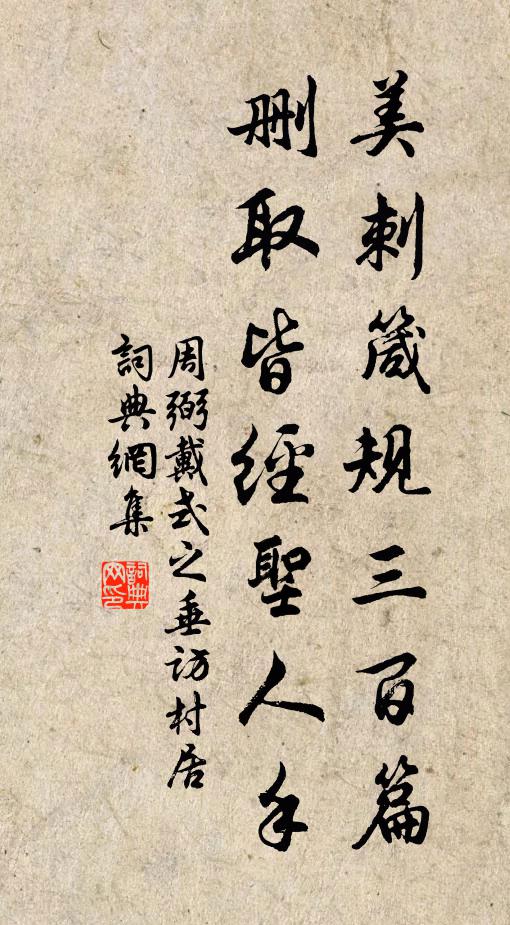 美刺箴規三百篇
刪取皆經聖人手
周弼戴式之垂訪村居
詞典網集
詞典网印